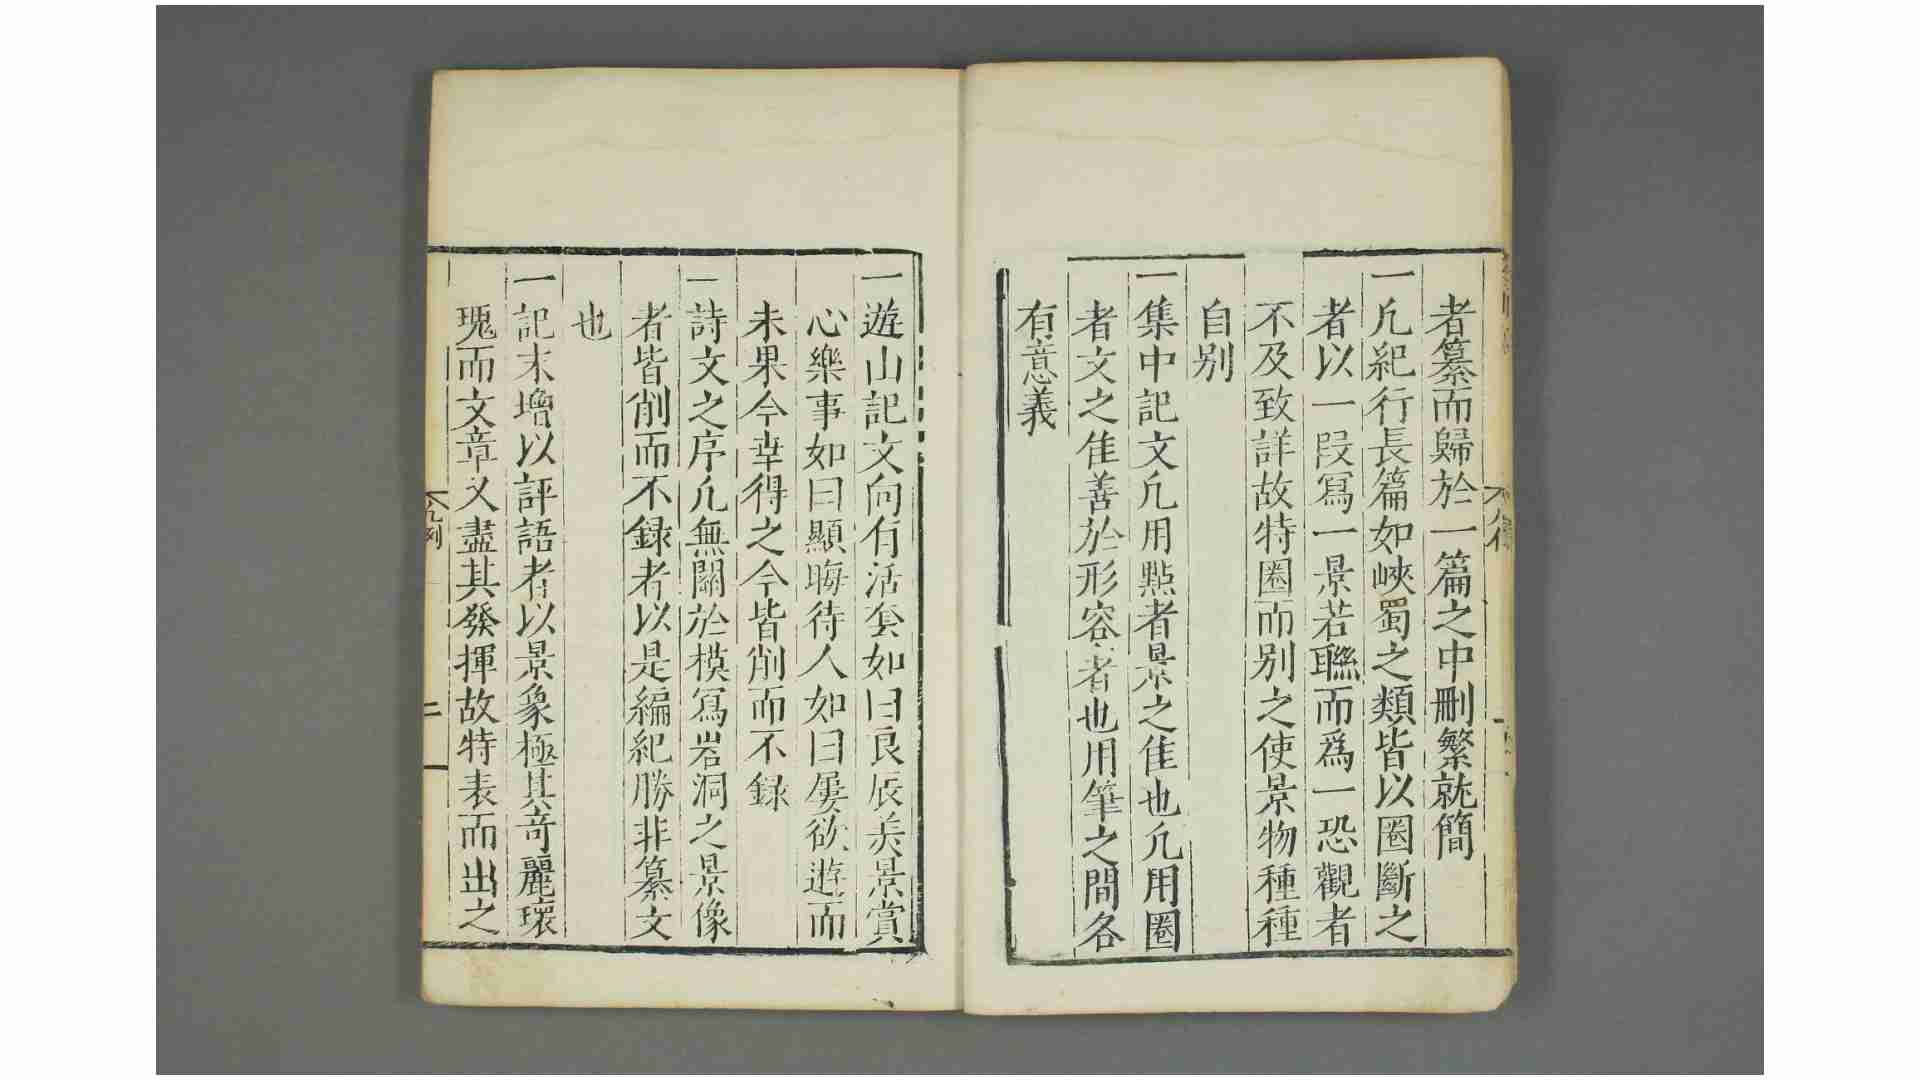 者纂而歸於一篇之中刪繁就簡
一凢紀行長篇如峽蜀之類皆以圈斷之
者以一段寫一景若聯而爲一恐觀者
不及致詳故特圈而别之使景物種種
自别
一集中記文凢用點者景之佳也凢用圈
者文之佳善於形容者也用筆之間各
有意義
一遊山記文向有活套如曰良辰美景賞
心樂事如曰顯晦待人如曰屢欲遊而
未果今幸得之今皆削而不録
一詩文之序凢無關於模寫岩洞之景像
者皆削而不録者以是編紀勝非纂文
也
一記末增以評語者以景象極其奇麗瓌
瑰而文章又盡其發揮故特表而出之
凢例
二